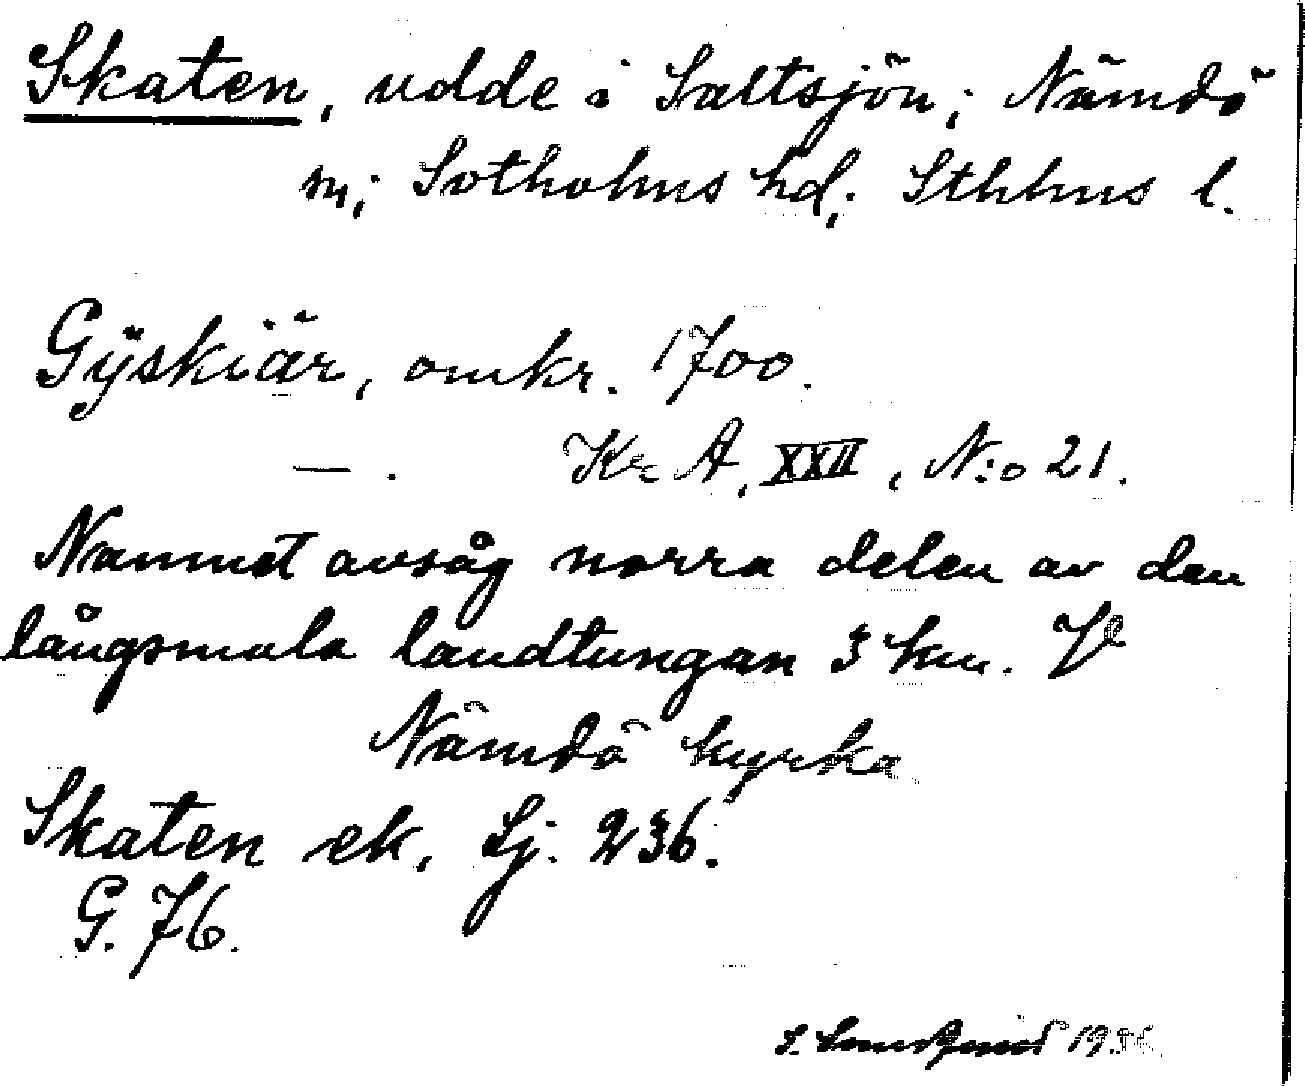 Skaten, udde i Saltsjön; Nämdö
sn; Sotholms hd; Sthlms l.
Gÿskiär, omkr. 1700.
— . Kr A, XXII, N:o 21.
Namnet avsåg norra delen av den
långsmala landtungan 3 km. V
Nämdö kyrka
Skaten ek, Sj. 236.
G. 76.
S.